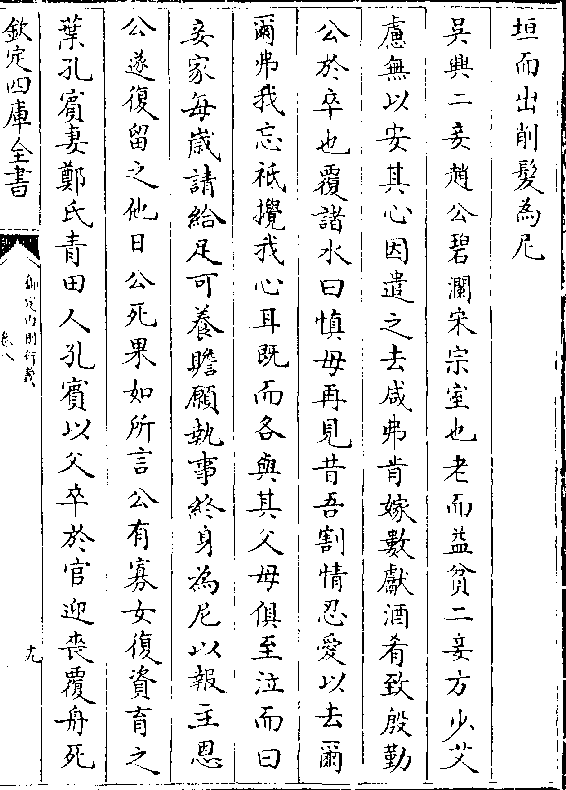 垣而出削髮為尼
吳興二妾趙公碧瀾宋宗室也老而益貧二妾方少艾
慮無以安其心因遣之去咸弗肯嫁數獻酒肴致殷勤
公於卒也覆諸水曰慎毋再見昔吾割情忍愛以去爾
爾弗我忘祗攪我心耳既而各與其父母俱至泣而曰
妾家每歲請給足可養贍願執事終身為尼以報主恩
公遂復留之他日公死果如所言公有寡女復資育之
葉孔賓妻鄭氏青田人孔賓以父卒於官迎喪覆舟死
欽定四庫全書
御定內則衍義
卷八
九